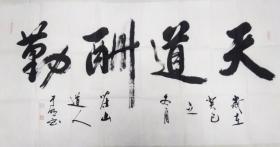 天道酬勤
歲在
癸巳
之
冬月
山
道人